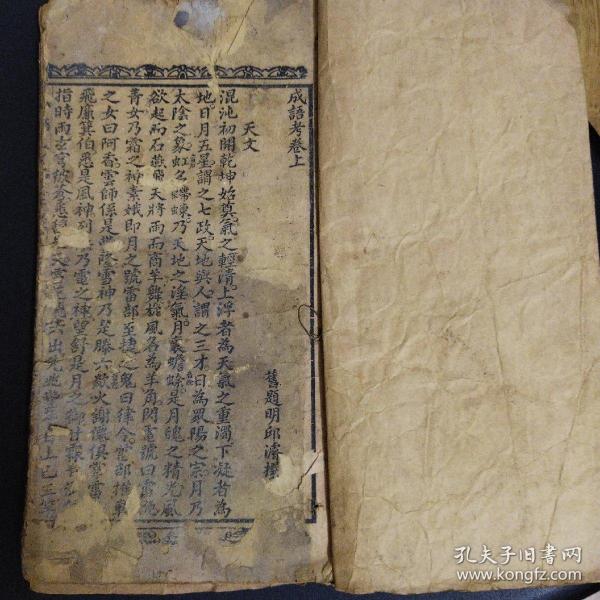 成語考卷上
舊題明邱濬撰
天文
混沌初開乾坤始奠氣之輕清上浮者為天氣之重濁下凝者為
地日月五星謂之七政天地與人謂之三才日為眾陽之宗月乃
太陰之象虹名螮蝀乃天地之淫氣月裏蟾蜍是月魄之精光風
欲起而石燕飛天將雨而商羊舞旋風名為羊角閃電號曰雷鞭
青女乃霜之神素娥即月之號雷部至捷之鬼曰律令雷部推車
之女曰阿香雲師係是豐隆雪神乃是滕六歘火謝僊俱掌雷
飛廉箕伯悉是風神列缺乃電之神望舒是月之御甘霖
指時雨玄穹彼蒼悉
孔夫子旧书网
www.kongfz.com